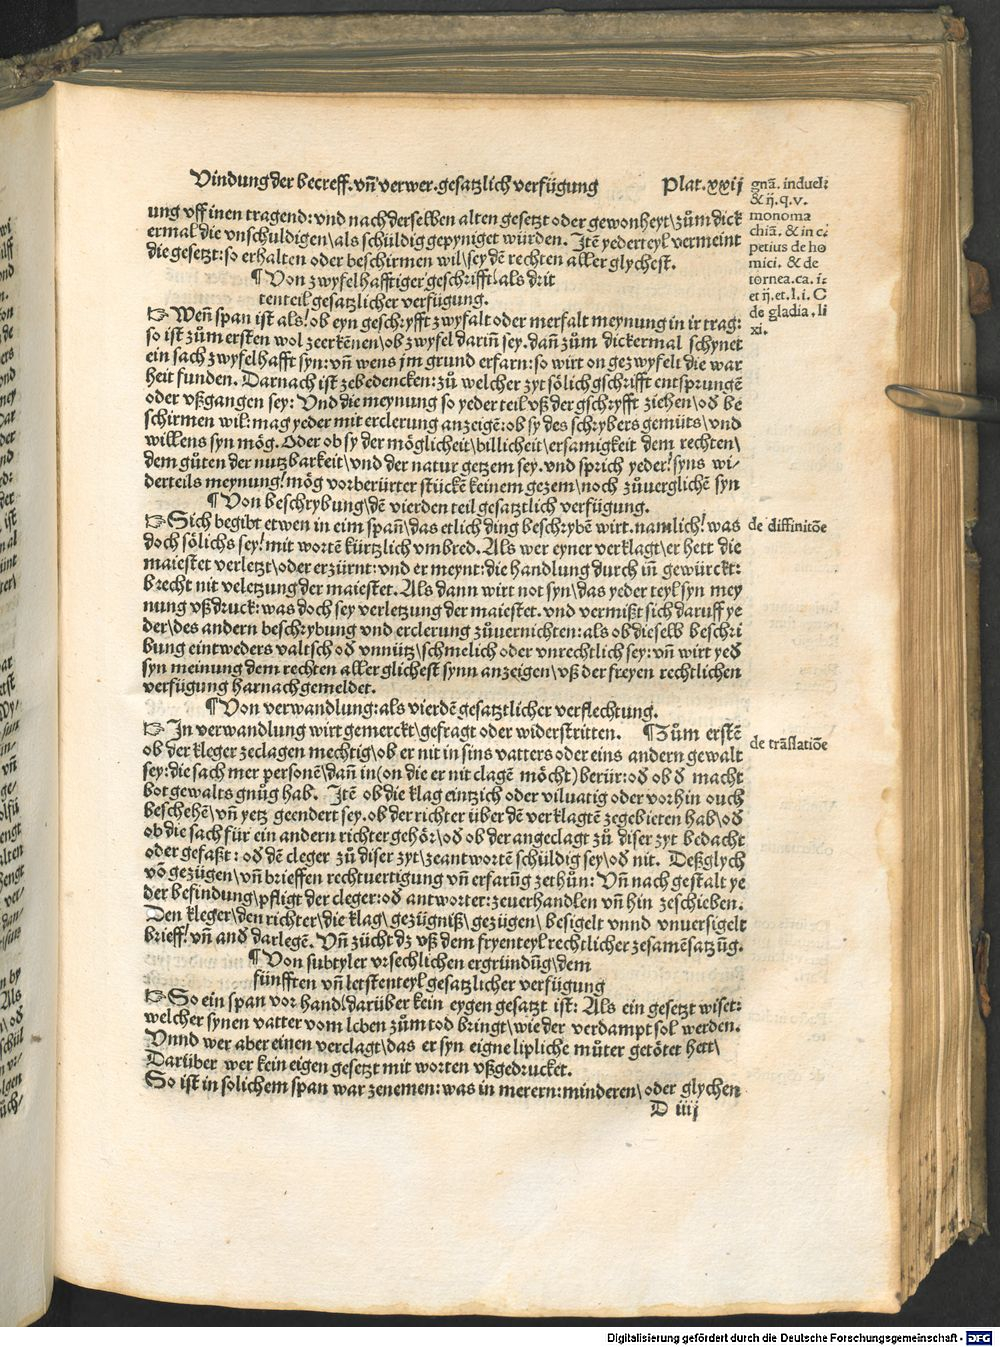 Vindung der betreff. vnd̄ verwer. gesatzlich verfügung Plat. xxij
ung vff inen tragend: vnd nach derselben alten gesetzt oder gewonheyt\ zům dick
ermal die vnschuldigen\ als schüldig gepyniget würden. Itē yeder teyl vermeint
die gesetzt: so erhalten oder beschirmen wil\ sey dē rechten aller glychest.
¶ Von zwyfelhafftiger geschrifft\ als drit
tenteil gesatzlicher verfügung.
☞ Wen̄ span ist als! ob eyn geschryfft zwyfalt oder merfalt meynung in ir trag:
so ist zům ersten wol zeerkēnen\ ob zwyfel darin̄ sey. dan̄ zům dickermal schynet
ein sach zwyfelhafft syn: vn̄ wens jm grund erfarn: so wirt on gezwyfelt die war
heit funden. Darnach ist zebedencken: zů welcher zyt sölich gschrifft entsprungē
oder vßgangen sey: Vnd die meynung so yeder teil vß der gschryfft ziehen\ od̄ be
schirmen wil: mag yeder mit erclerung anzeigē: ob sy des schrybers gemüts\ vnd
willens syn mög. Oder ob sy der möglicheit\ billicheit\ ersamigkeit dem rechten\
dem gůten der nutzbarkeit\ vnd der natur getzem sey. vnd sprich yeder! syns wi-
derteils meynung! mög vorberürter stückē keinem gezem\ noch zůuerglichē syn
¶ Von beschrybung\ dē vierden teil gesatztlich verfügung.
☞ Sich begibt etwen in eim span̄\ das etlich ding beschrybē wirt. namlich! was
doch sölichs sey! mit wortē kürtzlich vmbred. Als wer eyner verklagt\ er hett die
maiestet verletzt\ oder erzürnt: vnd er meynt: die handlung durch in̄ gewürckt:
brecht nit veletzung der maiestet. Als dann wirt not syn\ das yeder teyl syn mey
nung vßdruck: was doch sey verletzung der maiestet. vnd vermißt sich daruff ye
der\ des andern beschrybung vnd erclerung zůuernichten: als ob dieselb beschri
bung eintweders valtsch od̄ vnnütz\ schmelich oder vnrechtlich sey: vn̄ wirt yed̄
syn meinung dem rechten aller glichest synn anzeigen\ vß der freyen rechtlichen
verfügung harnach gemeldet.
¶ Von verwandlung: als vierdē gesatztlicher verflechtung.
☞ In verwandlung wirt gemerckt\ gefragt oder widerstritten. ¶ Zům erstē
ob der kleger zeclagen mechtig\ ob er nit in sins vatters oder eins andern gewalt
sey: die sach mer personē\ dan̄ in (on die er nit clagē möcht) berür: od̄ ob d̄ macht
bot gewalts gnůg hab. Itē ob die klag eintzich oder viluatig oder vorhin ouch
beschehē\ vn̄ yetz geendert sey. ob der richter über dē verklagtē zegebieten hab\ od̄
ob die sach für ein andern richter gehör\ od̄ ob der angeclagt zů diser zyt bedacht
oder gefaßt: od̄ dē cleger zů diser zyt\ zeantwortē schüldig sey\ od̄ nit. Deßglych
vō gezügen\ vn̄ brieffen rechtuertigung vn̄ erfarūg zethůn: Vn̄ nach gestalt ye
der befindung\ pfligt der cleger: od̄ antworter: zeuerhandlen vn̄ hin zeschieben.
Den kleger\ den richter\ die klag\ gezügniß\ gezügen\ besigelt vnnd vnuersigelt
brieff! vn̄ and̄ darlegē. Vn̄ zücht dz vß dem fryenteyl rechtlicher zesamēsatzūg.
¶ Von subtyler vrsechlichen ergründūg\ dem
fünfften vn̄ letstenteyl gesatzlicher verfügung
☞ So ein span vor hand! darüber kein eygen gesatzt ist: Als ein gesetzt wiset:
welcher synen vatter vom leben zům tod bringt\ wie der verdampt sol werden.
Vnnd wer aber einen verclagt\ das er syn eigne lipliche můter getötet hett\
Darüber wer kein eigen gesetzt mit worten vßgedrucket.
So ist in solichem span war zenemen: was in merern: minderen\ oder glychen
D iiij
gnā. induel:
& ij. q. v.
monoma
chiā. & in c.
petius de ho
mici. & de
tornea. ca. i:
et ij. et. l. i. C
de gladia. li
xi.
de diffinitōe
de trāslatiōe
Digitalisierung gefördert durch die Deutsche Forschungsgemeinschaft - DFG